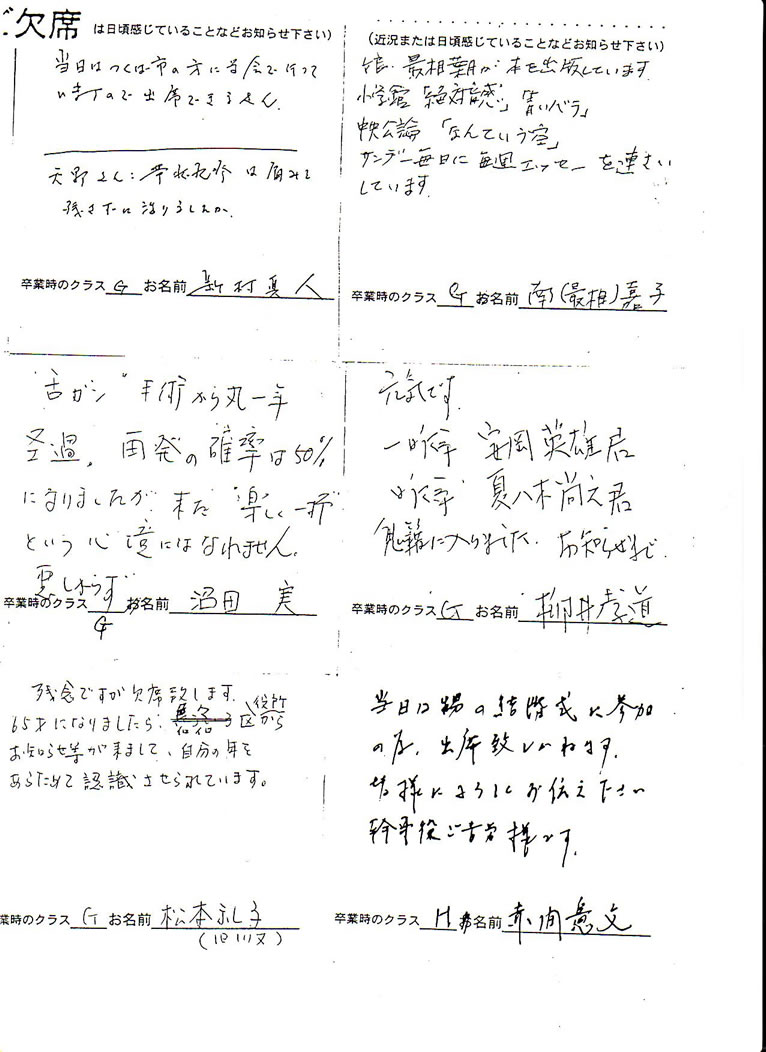 ご欠席
は日頃感じていることなどお知らせ下さい)
当日はつくば市の方に
ので出席できません。
天野さん:
卒業時のクラス G お名前 新村真人
(近況または日頃感じていることなどお知らせ下さい)
最相葉月が本を出版しています。
小学館「絶対音感」「青いバラ」
中央公論「なんといふ空」
サンデー毎日に毎週エッセーを連さい
しています。
卒業時のクラス G お名前 南(最相)嘉子
"舌ガン"手術から丸一年
経過。再発の確率は50%
になりましたが、まだ
という心境にはなれません。
悪しからず
卒業時のクラス G お名前 沼田 実
元気です。
安岡英雄君
夏八木尚之君
鬼籍に入りました。お知らせまで。
卒業時のクラス G お名前 柳井孝道
残念ですが欠席致します。
65才になりましたら、区役所から
お知らせ等が来まして、自分の年を
あらためて認識させられています。
卒業時のクラス G お名前 松本礼子
(旧川又)
当日は甥の結婚式に参加
の為、出席致しかねます。
皆様によろしくお伝え下さい
幹事役ご苦労様です。
卒業時のクラス H お名前 赤間